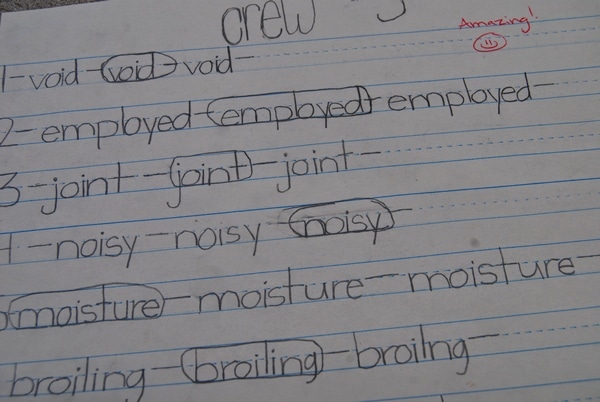 crew
Amazing!
1-void-void-void-
2-employed-employed-employed-
3-joint-joint-joint-
4-noisy-noisy-noisy-
moisture-moisture-moisture-
broiling-broiling-broilng-